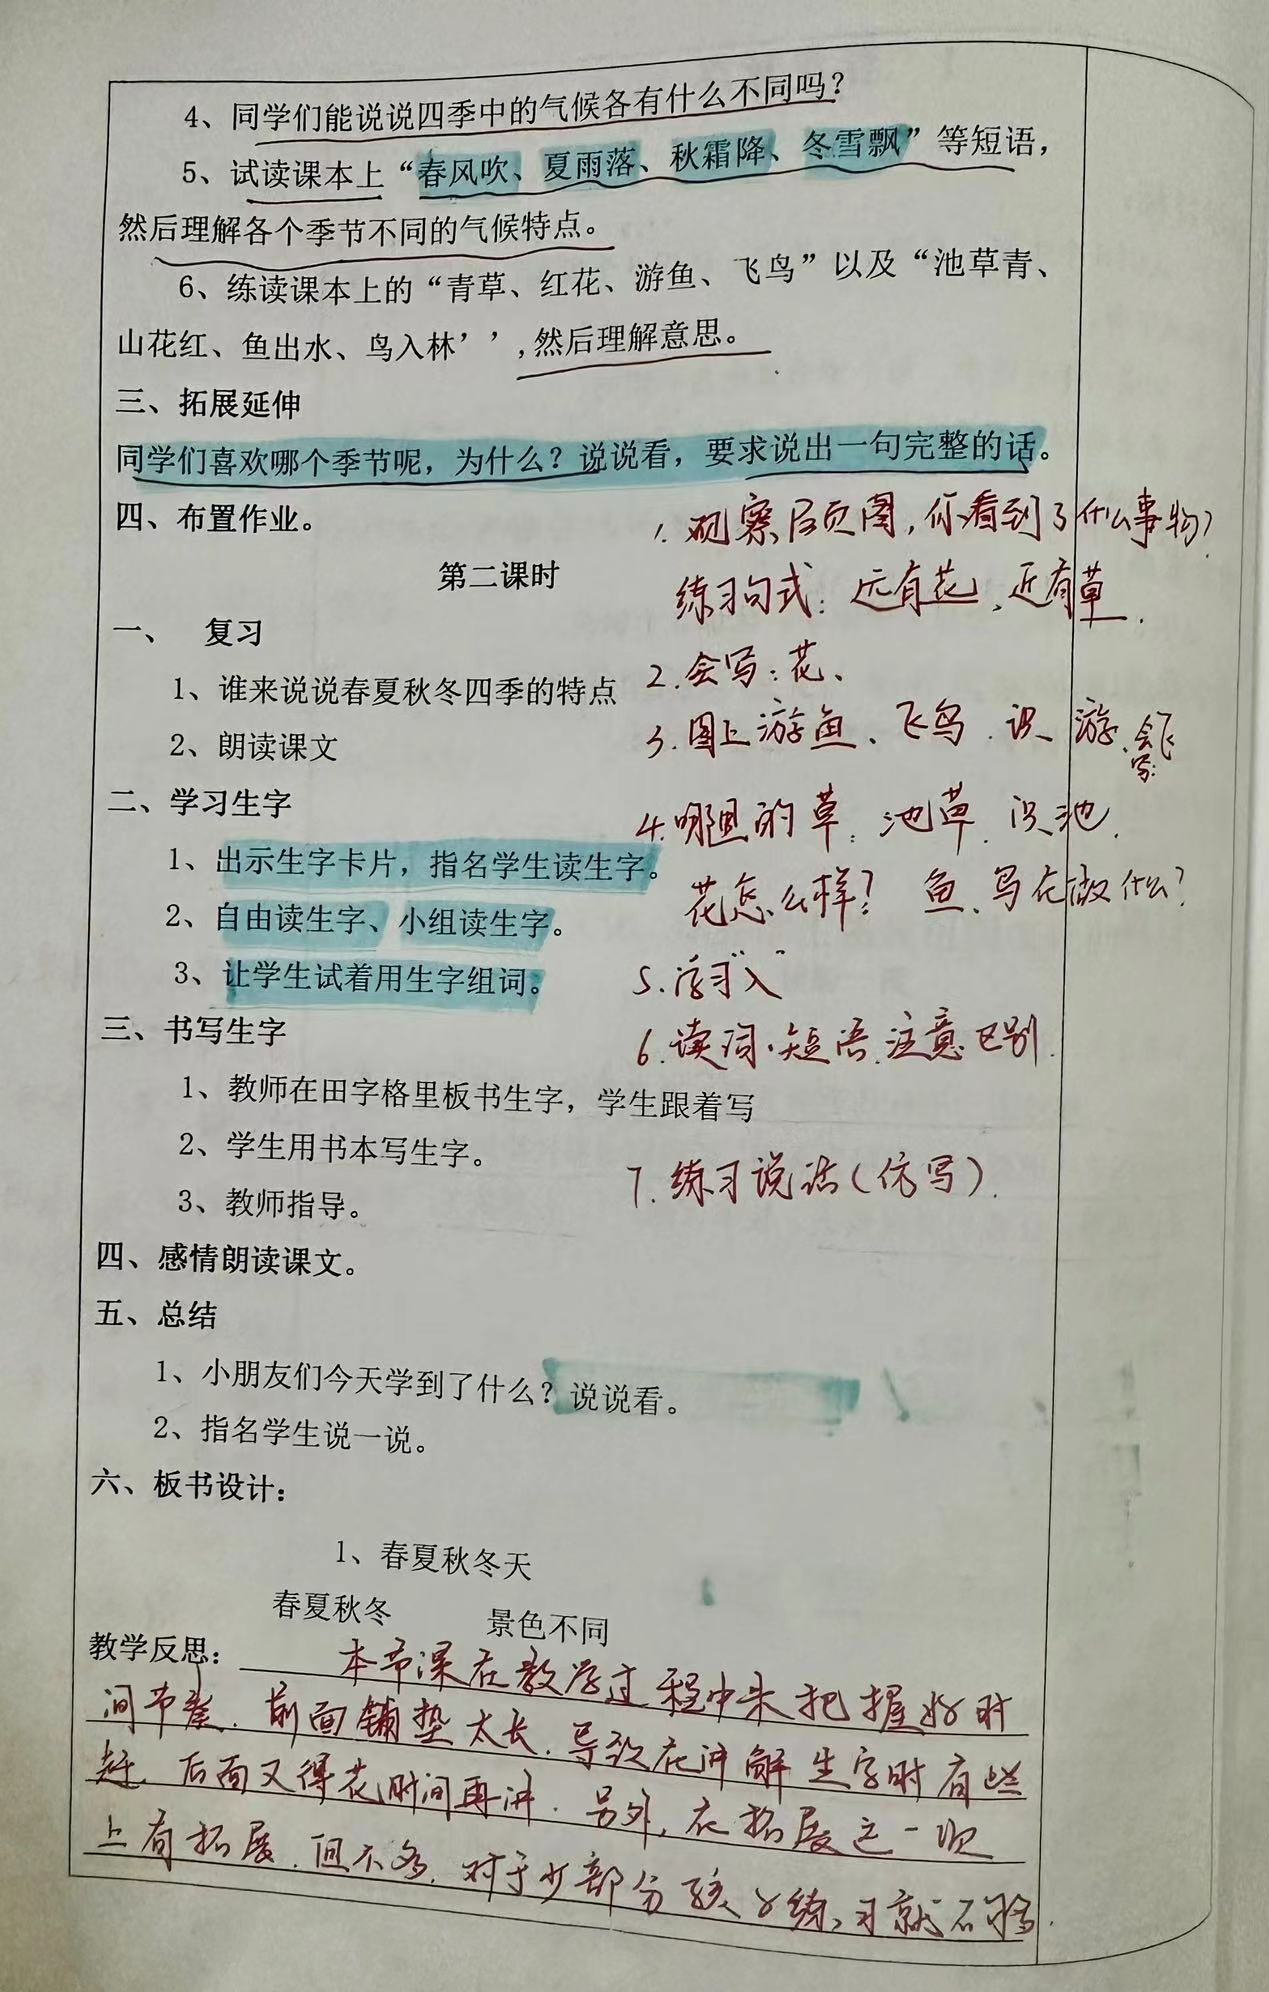 4、同学们能说说四季中的气候各有什么不同吗？
5、试读课本上“春风吹、夏雨落、秋霜降、冬雪飘”等短语，
然后理解各个季节不同的气候特点。
6、练读课本上的“青草、红花、游鱼、飞鸟”以及“池草青、
山花红、鱼出水、鸟入林’’,然后理解意思。
三、拓展延伸
同学们喜欢哪个季节呢，为什么？说说看，要求说出一句完整的话。
四、布置作业。
第二课时
一、 复习
1、谁来说说春夏秋冬四季的特点
2、朗读课文
二、学习生字
1、出示生字卡片，指名学生读生字。
2、自由读生字、小组读生字。
3、让学生试着用生字组词。
三、书写生字
1、教师在田字格里板书生字，学生跟着写
2、学生用书本写生字。
3、教师指导。
四、感情朗读课文。
五、总结
1、小朋友们今天学到了什么？说说看。
2、指名学生说一说。
六、板书设计：
1、春夏秋冬天
春夏秋冬 景色不同
1. 观察后页图，你看到了什么事物？
练习句式：远有花、近有草.
2.会写：花、
3.图上游鱼、飞鸟.识 游、会写：飞
4.哪里的草：池草.识池.
花怎么样？ 鱼、鸟在做什么？
5.学习“入”
6.读词.短语.注意区别.
7.练习说话（仿写）.
教学反思：本节课在教学过程中未把握好时
间节奏.前面铺垫太长.导致在讲解生字时有些
赶.后面又得花时间再讲.另外，在拓展这一块
上有拓展.但不多.对于少部分孩子练习就不够.